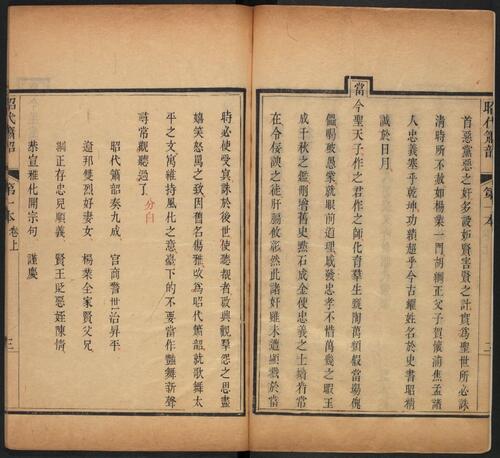 昭代簫韶
第一本
三
首惡黨惡之奸多設妒賢害賢之計實為聖世所必誅
清時所不赦如楊業一門胡綱正父子賀懷浦焦孟諸
人忠義塞乎乾坤功績超乎今古耀姓名於史書昭精
誠於日月
當今聖天子作之君作之師化育羣生甄陶萬類假當場傀
儡暢破愚蒙就眼前道理感發忠孝不惜萬幾之暇王
成千秋之鑑刑增舊史點石成金使忠義之士尚有常
在令佞諛之徒肝腸攸託然此諸奸雖未遭顯戮於當
時必使受冥誅於後世使聽觀者啟興觀羣怨之思盡
嬉笑怒罵之致因舊名傷雅改為昭代簫韶就歌舞太
平之文寓維持風化之意臺下的不要當作豔舞新聲
尋常觀聽過了
分白
昭代簫韶奏九成
宮商警世治昇平
遼邦雙烈好妻女
楊業全家賢父兄
綱正存忠兒順義
賢王貶惡姪陳情
恭宣雅化開宗句
謹慶
昭代簫韶
第一本卷上
三